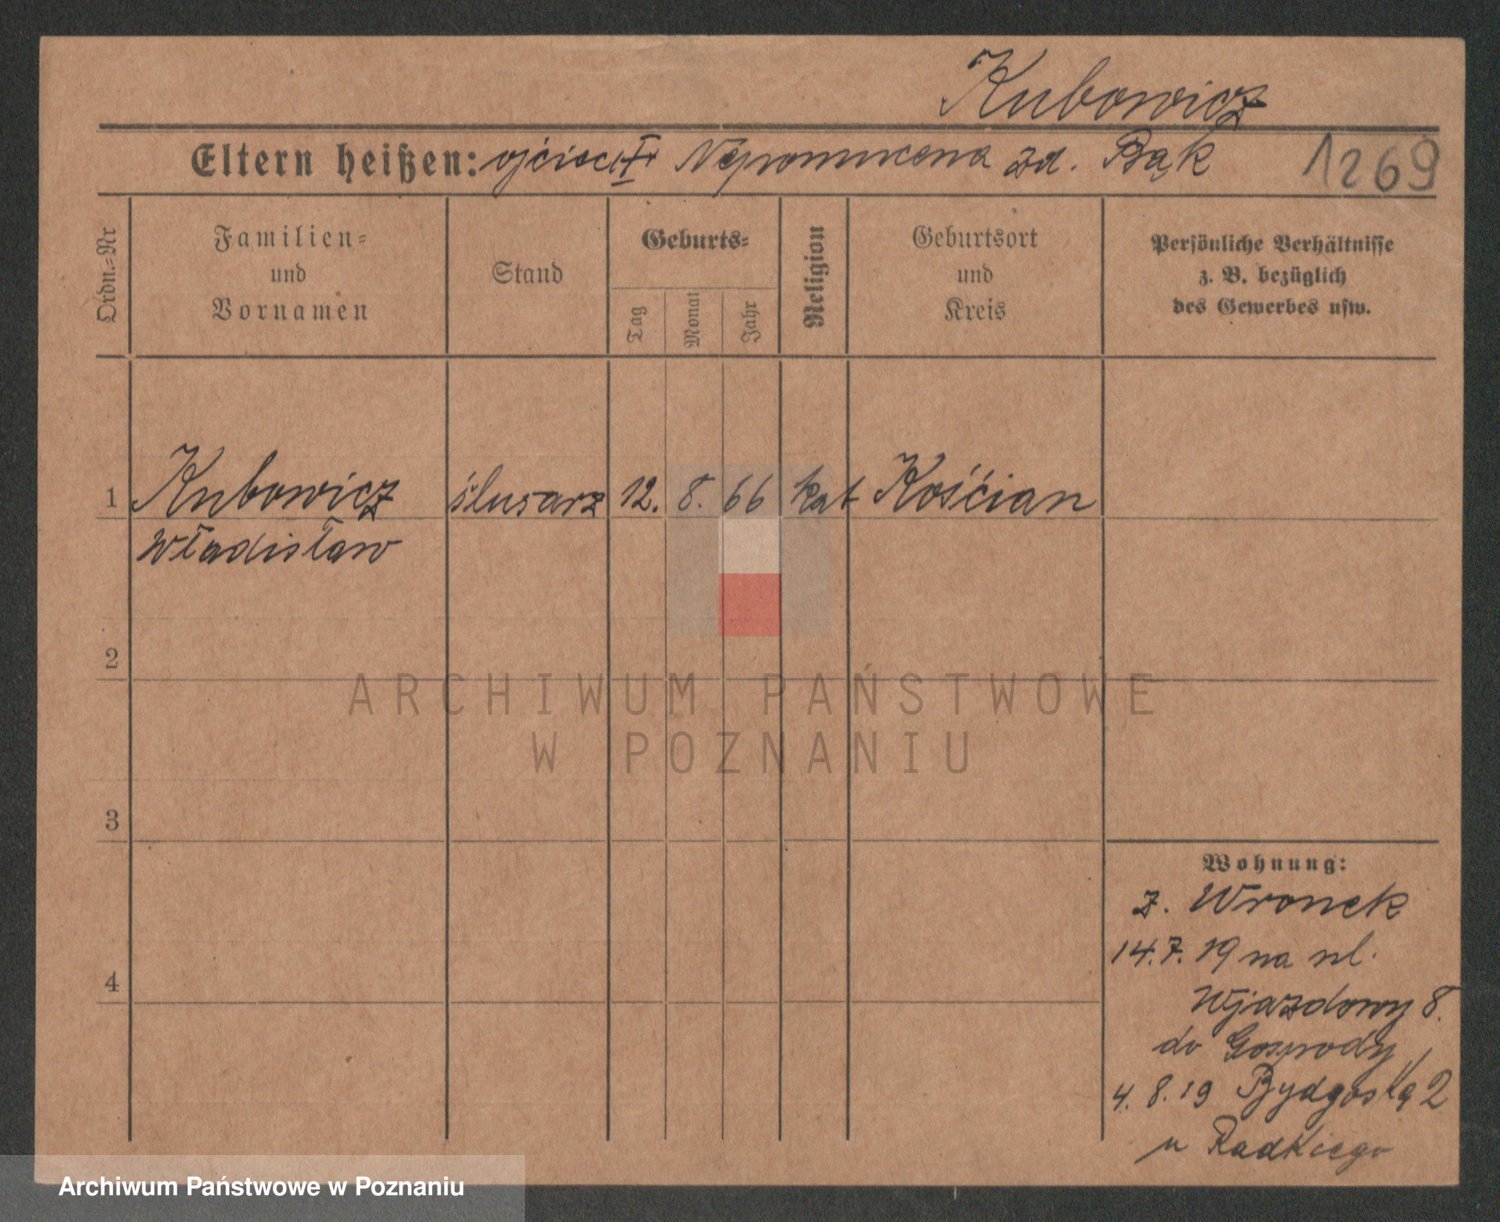 Kubowicz
Eltern heißen: ojciec Nepomucena zd. Bąk 1269
Ordn.-Nr
Familien-
und
Vornamen
Stand
Geburts-
Tag
Monat
Jahr
Religion
Geburtsort
und
Kreis
Persönliche Verhältnisse
z. B. bezüglich
des Gewerbes usw.
1 Kubowicz ślusarz 12. 8. 66 kat Kośćian
Władisław
2
ARCHIWUM PAŃSTWOWE
W POZNANIU
3
Wohnung:
z. Wronek
14.7.19 na ul.
4
Wjazdowy 8.
do Gospody
4. 8. 19 Bydgoską 2
u Radkiego
Archiwum Państwowe w Poznaniu